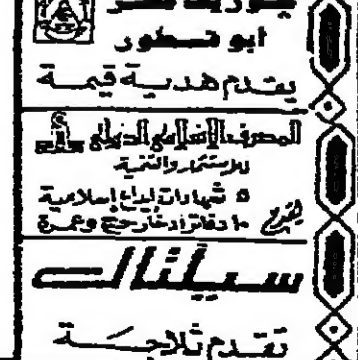 ابو قطور
يقدم هدية قيمة
المصرف الإسلامي الدولي
للاستثمار والتنمية
٥ شهادات إيداع إسلامية
يقدم
١٠ دفاتر إدخار حج وعمرة
سيلتال
تقدم ثلاجة